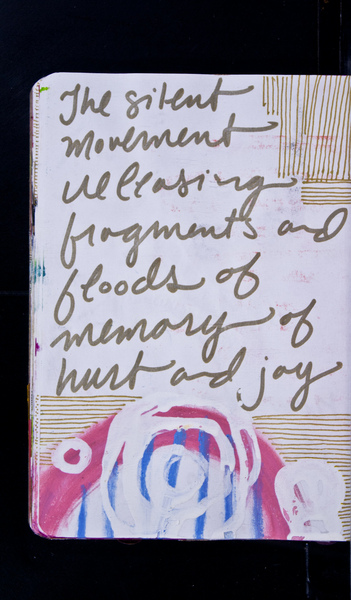 The silent
movement
releasing
fragments and
floods of
memory of
hurt and joy